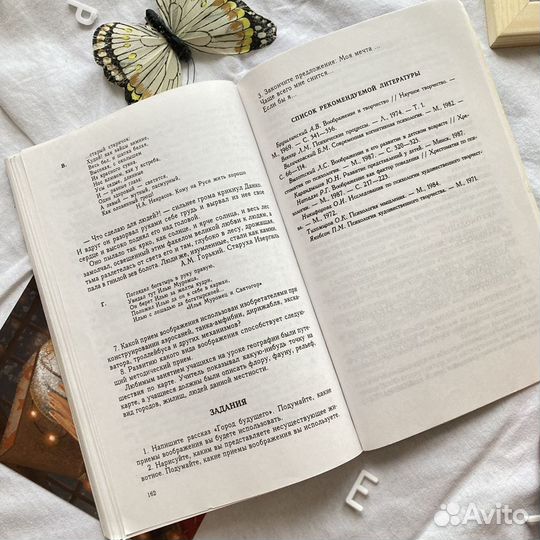 В.
...старый старичок:
Худой! как зайцы зимние.
Весь бел, и шапка белая,
Высокая, с околышем
Из красного сукна.
Нос клювом, как у ястреба,
Усы седые, длинные
И — разные глаза:
Один здоровый — светится,
А левый — мутный, пасмурный,
Как оловянный грош!
Н.А. Некрасов. Кому на Руси жить хорошо
— Что сделаю для людей?! — сильнее грома крикнул Данко.
И вдруг он разорвал руками себе грудь и вырвал из нее свое
сердце и высоко поднял его над головой.
Оно пылало так ярко, как солнце, и ярче солнца, и весь лес
замолчал, освещенный этим факелом великой любви к людям, а
тьма разлетелась от света его и там, глубоко в лесу, дрожащая,
пала в гнилой зев болота. Люди же, изумленные, стали как камни.
А.М. Горький. Старуха Изергиль
Г.
Поглядел богатырь в руку правую,
Увидал тут Илью Муромца,
Он берет Илью за желты кудри,
Положил Илью да он к себе в карман,
Илью с лошадью да богатырскоей...
«Илья Муромец и Святогор»
7. Какой прием воображения использован изобретателями при
конструировании аэросаней, танка-амфибии, дирижабля, экска-
ватора, троллейбуса и других механизмов?
8. Развитию какого вида воображения способствует следую-
щий методический прием.
Любимым занятием учащихся на уроке географии были путе-
шествия по карте. Учитель показывал какую-нибудь точку на
карте, а учащиеся должны были описать флору, фауну, рельеф,
вид городов, жилищ, людей данной местности.
ЗАДАНИЯ
1. Напишите рассказ «Город будущего». Подумайте, какие
приемы воображения вы будете использовать.
2. Нарисуйте, каким вы представляете несуществующее жи-
вотное. Подумайте, какие приемы воображения вы используете.
162
3. Закончите предложения. Моя мечта ...
Чаще всего мне снится...
Если бы я...
СПИСОК РЕКОМЕНДУЕМОЙ ЛИТЕРАТУРЫ
А.В. Воображение и творчество // Научное творчество. —
М., 1969. — С. 341—355.
Веккер Л.М. Психические процессы. — Л., 1974. — Т. 1.
Величковский Б.М. Современная когнитивная психология. — М., 1982.
— С. 66—114.
Выготский Л.С. Воображение и его развитие в детском возрасте // Хре-
стоматия по психологии. — М., 1987. — С. 320—325.
Ю.Н. Развитие представлений у детей. — Минск, 1987.
Р.Г. Воображение как фактор поведения // Хрестоматия по психо-
логии. — М., 1987. — С. 217—223.
Никифорова О.И. Исследования по психологии художественного творчест-
ва. — М., 1972.
Тихомиров О.К. Психология мышления. — М., 1984.
Якобсон П.М. Психология художественного творчества. — М., 1971.
P
E
Avito